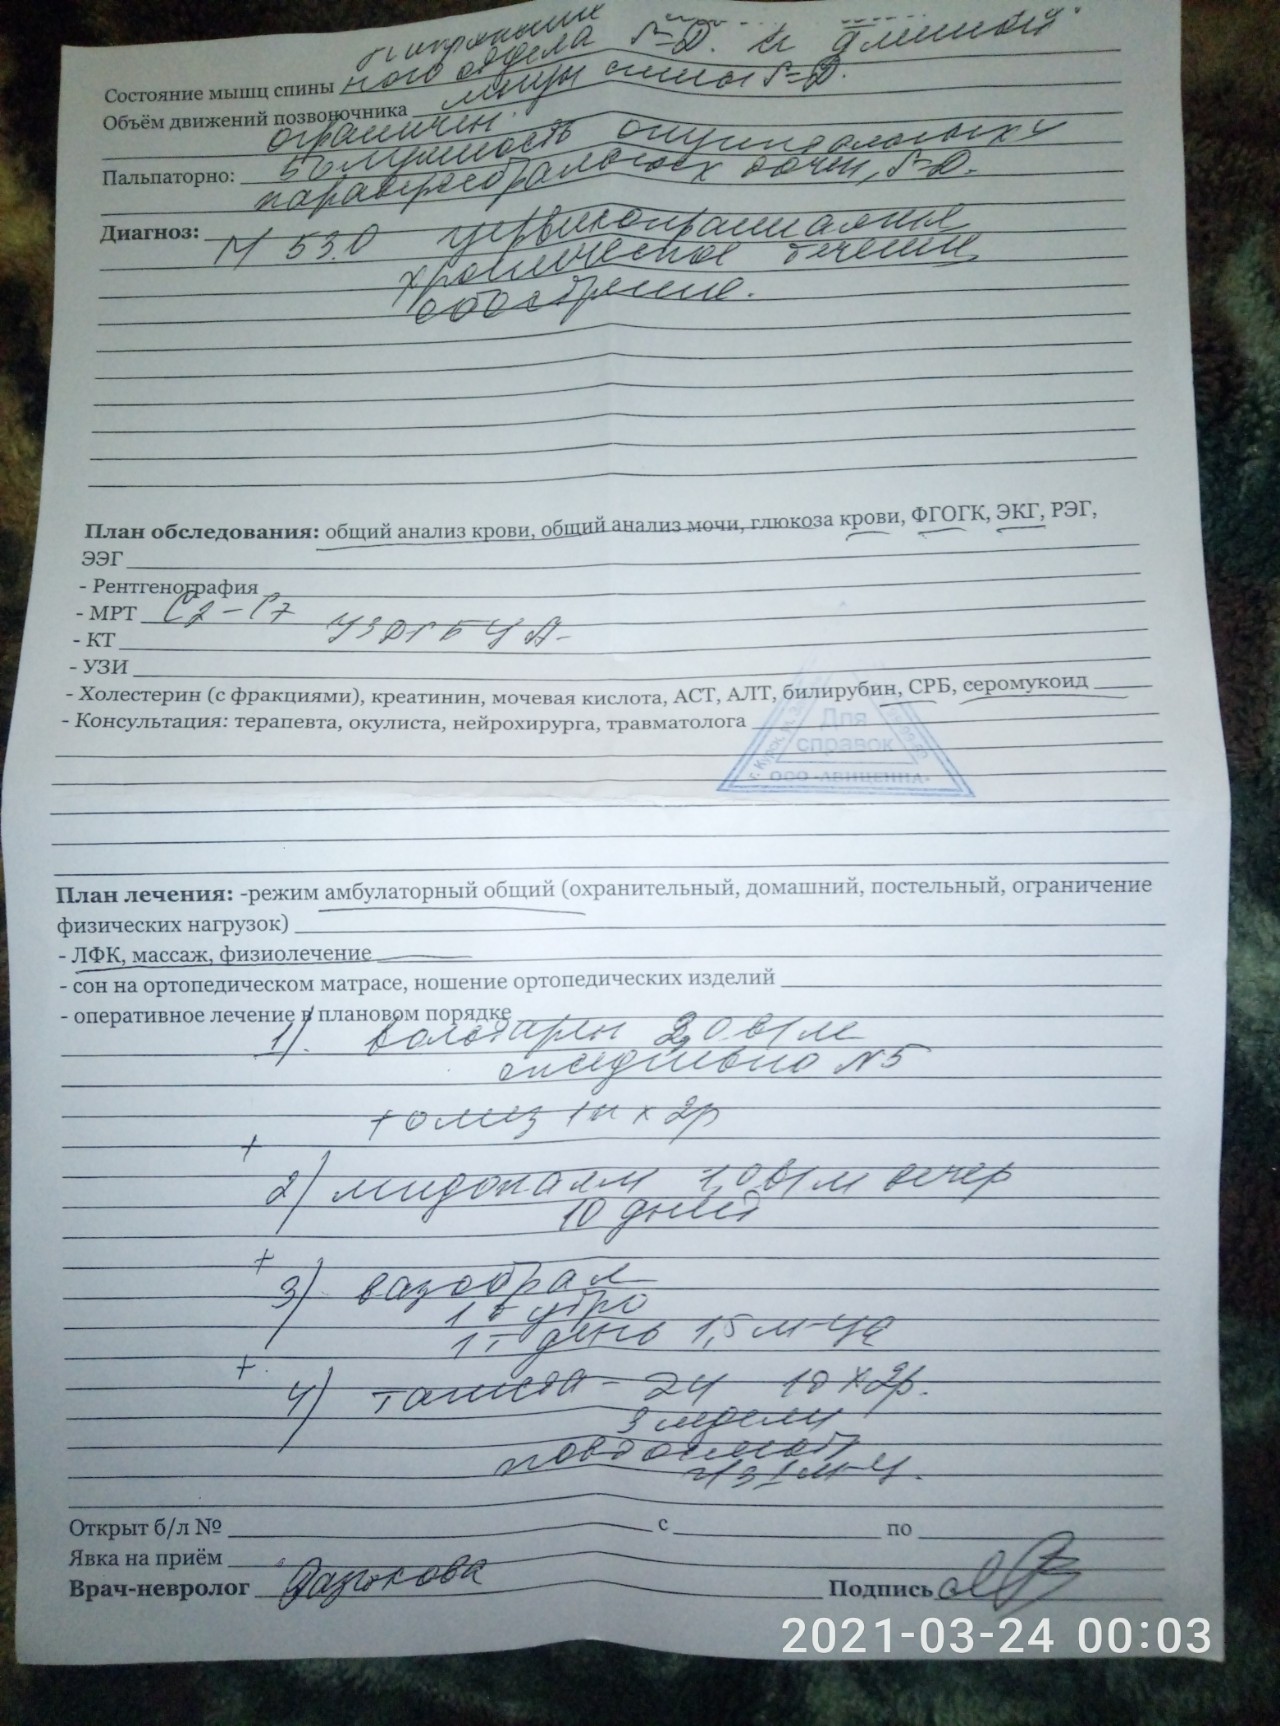 ного отдела S=D. и длинной
Состояние мышц спины
мышцы спины S=D.
Объём движений позвоночника
ограничен.
болезненность окципитальных и
Пальпаторно:
паравертебральных точек, S=D.
Диагноз:
М 53.0 цервикобрахиалгия
хроническое течение
обострение.
План обследования: общий анализ крови, общий анализ мочи, глюкоза крови, ФГОГК, ЭКГ, РЭГ,
ЭЭГ
- Рентгенография
- МРТ С2-С7
УЗДГ БЦА-
- КТ
- УЗИ
- Холестерин (с фракциями), креатинин, мочевая кислота, АСТ, АЛТ, билирубин, СРБ, серомукоид
- Консультация: терапевта, окулиста, нейрохирурга, травматолога
Для
справок
ООО «АВИЦЕННА»
План лечения: -режим амбулаторный общий (охранительный, домашний, постельный, ограничение
физических нагрузок)
- ЛФК, массаж, физиолечение
- сон на ортопедическом матрасе, ношение ортопедических изделий
- оперативное лечение в плановом порядке
1). вольтарен 3,0 в/м
ежедневно N5
+ омез 1к х 2р
+
2) мидокалм 1,0 в/м вечер
10 дней
+
3) вазобрал
1 т утро
1т день 1,5 м-ца
+
4) 24 х 2р.
3 недели
1 м-ц.
Открыт б/л № с по
Явка на приём
Врач-невролог Подпись
2021-03-24 00:03